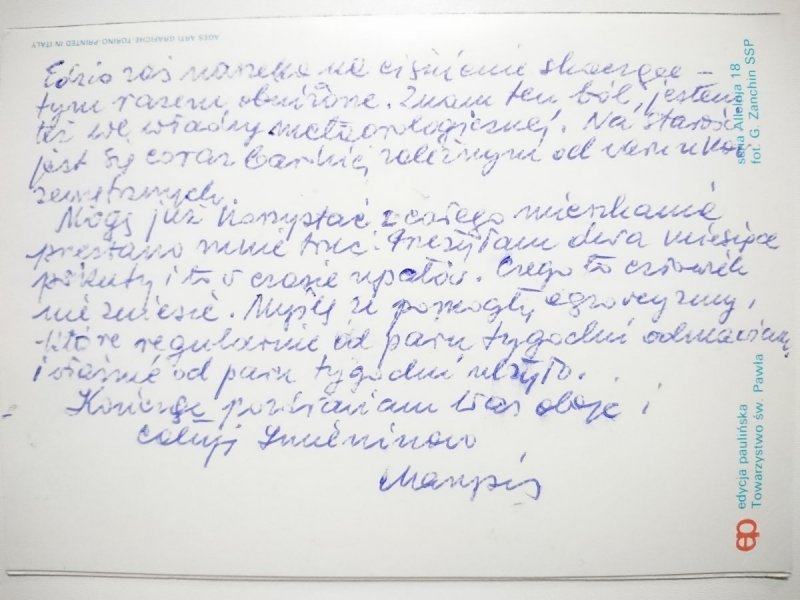 AGES ARTI GRAFICHE TORINO PRINTED IN ITALY
Edzio zaś narzeka na ciśnienie skaczące –
tym razem obniżone. Znam ten ból, jestem
też we władzy meteorologicznej. Na starość
jest się coraz bardziej zależnym od warunków
zewnętrznych.
Mogę już korzystać z całego mieszkania
przestano mnie truć. Przeżyłam dwa miesiące
pokuty i to w czasie upałów. Czego to człowiek
nie zniesie. Myślę że pomogły egzorcyzmy,
które regularnie od paru tygodni odmawiam
i właśnie od paru tygodni
Kończąc pozdrawiam Was oboje i
całuję
seria Alleluja 18
fot. G. Zanchin SSP
edycja paulińska
Towarzystwo św. Pawła
ep